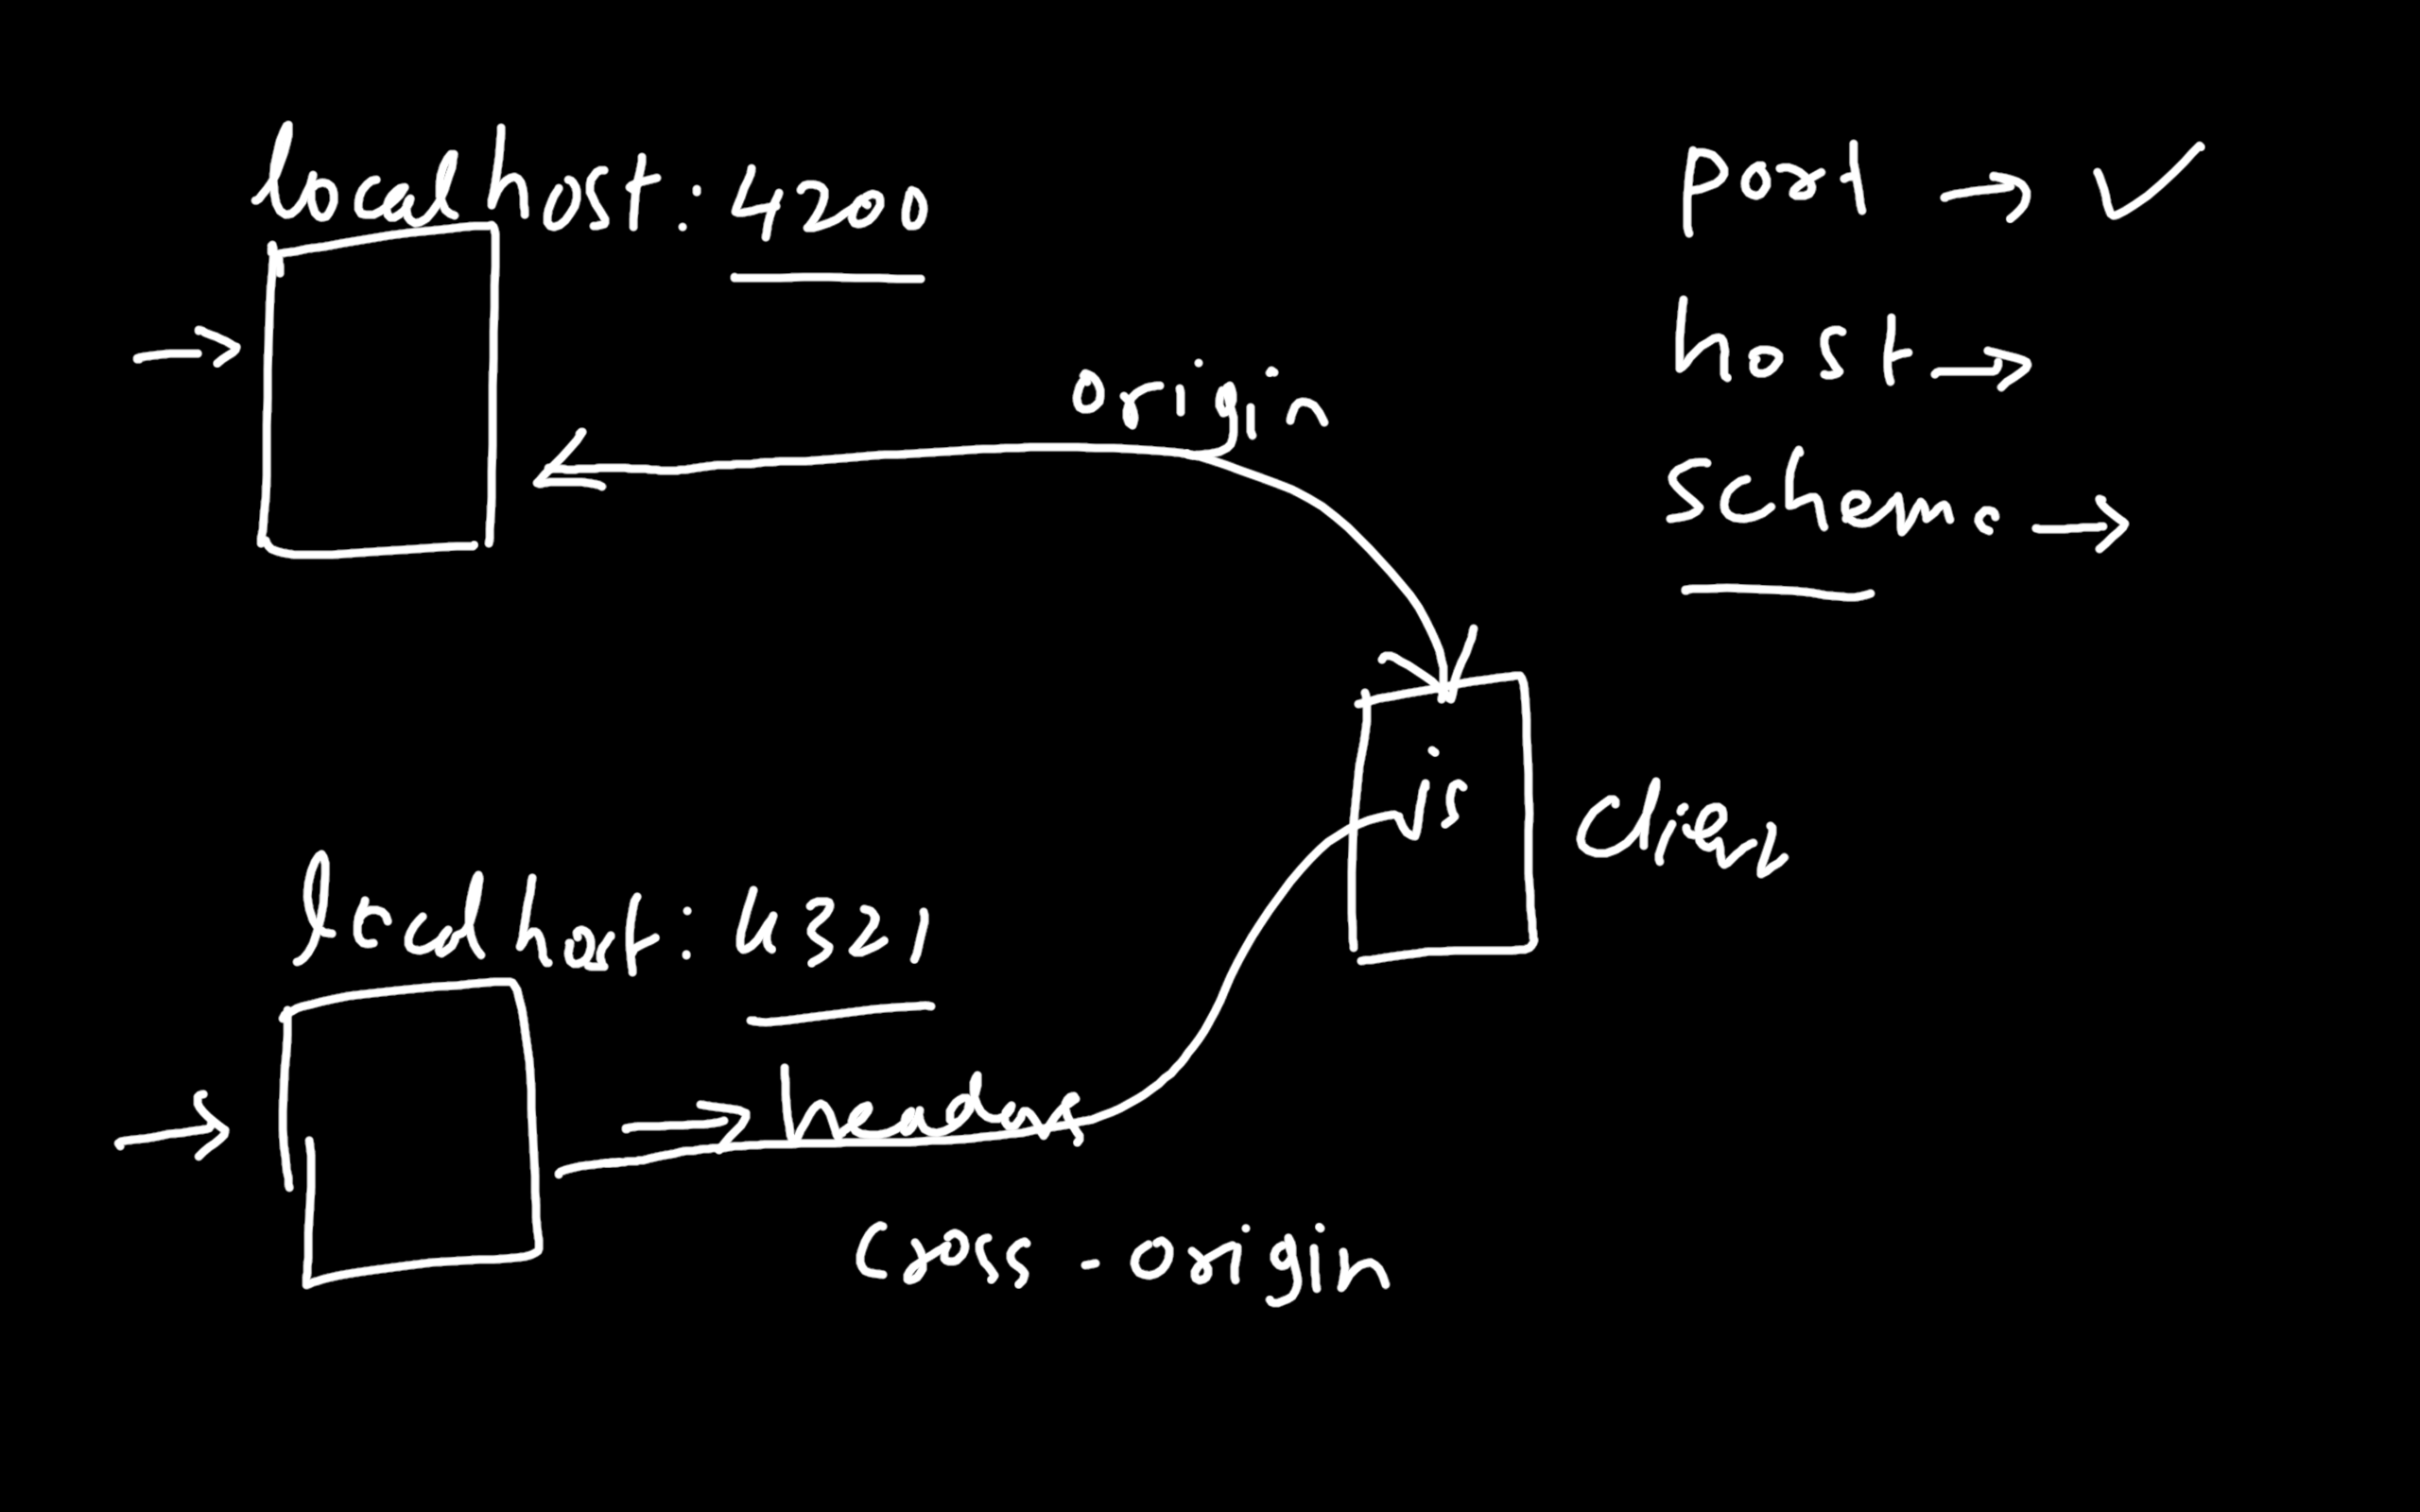 localhost: 4200
port → ✓
host →
schema →
origin
js
client
localhost: 4321
→ headers
cross-origin